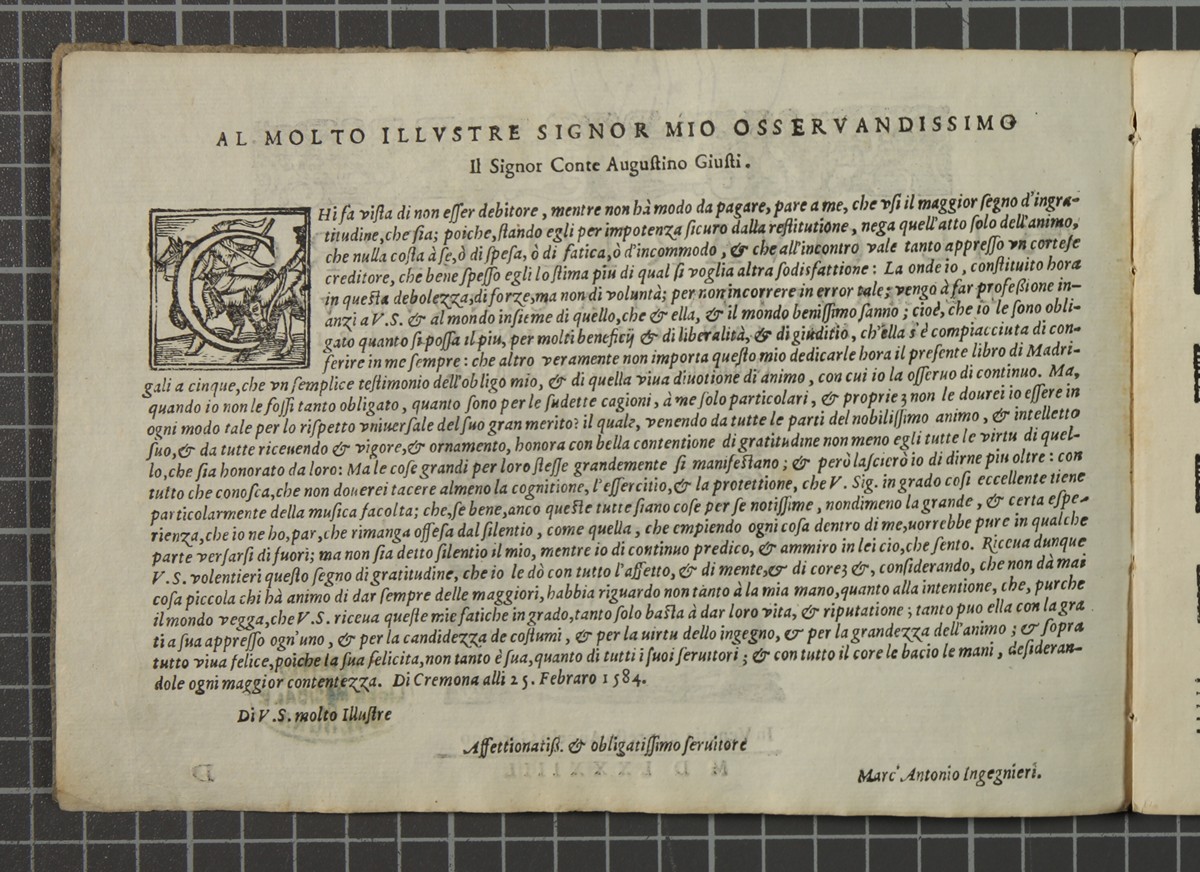 AL MOLTO ILLVSTRE SIGNOR MIO OSSERVANDISSIMO
Il Signor Conte Auguſtino Giuſti.
CHi fa viſta di non eſſer debitore, mentre non hà modo da pagare, pare a me, che vſi il maggior ſegno d'ingra-
titudine, che ſia; poiche, ſtando egli per impotenza ſicuro dalla reſtitutione, nega quell'atto ſolo dell'animo,
che nulla coſta à ſe, ò di ſpeſa, ò di fatica, ò d'incommodo, & che all'incontro vale tanto appreſſo vn corteſe
creditore, che bene ſpeſſo egli lo ſtima piu di qual ſi voglia altra ſodisfattione: La onde io, conſtituito hora
in queſta debolezza, di forze, ma non di voluntà; per non incorrere in error tale; vengo à far profeßione in-
anzi a V.S. & al mondo inſieme di quello, che & ella, & il mondo beniſſimo ſanno; cioè, che io le ſono obli-
gato quanto ſi poſſa il piu, per molti beneficij & di liberalità, & di giuditio, ch'ella s'è compiacciuta di con-
ferire in me ſempre: che altro veramente non importa queſto mio dedicarle hora il preſente libro di Madri-
gali a cinque, che vn ſemplice teſtimonio dell'obligo mio, & di quella viua diuotione di animo, con cui io la oſſeruo di continuo. Ma,
quando io non le foſſi tanto obligato, quanto ſono per le ſudette cagioni, à me ſolo particolari, & proprie; non le dourei io eſſere in
ogni modo tale per lo riſpetto vniuerſale del ſuo gran merito? il quale, venendo da tutte le parti del nobiliſſimo animo, & intelletto
ſuo, & da tutte riceuendo & vigore, & ornamento, honora con bella contentione di gratitudine non meno egli tutte le virtu di quel-
lo, che ſia honorato da loro: Ma le coſe grandi per loro ſteſſe grandemente ſi manifeſtano; & però laſcierò io di dirne piu oltre: con
tutto che conoſca, che non douerei tacere almeno la cognitione, l'eſſercitio, & la protettione, che V. Sig. in grado coſi eccellente tiene
particolarmente della muſica facolta; che, ſe bene, anco queſte tutte ſiano coſe per ſe notiſſime, nondimeno la grande, & certa eſpe-
rienza, che io ne ho, par, che rimanga offeſa dal ſilentio, come quella, che empiendo ogni coſa dentro di me, uorrebbe pure in qualche
parte verſarſi di fuori; ma non ſia detto ſilentio il mio, mentre io di continuo predico, & ammiro in lei cio, che ſento. Riceua dunque
V.S. volentieri queſto ſegno di gratitudine, che io le dò con tutto l'affetto, & di mente, & di core; &, conſiderando, che non dà mai
coſa piccola chi hà animo di dar ſempre delle maggiori, habbia riguardo non tanto à la mia mano, quanto alla intentione, che, purche
il mondo vegga, che V.S. riceua queſte mie fatiche in grado, tanto ſolo baſta à dar loro vita, & riputatione; tanto puo ella con la gra
ti a ſua appreſſo ogn'uno, & per la candidezza de coſtumi, & per la uirtu dello ingegno, & per la grandezza dell'animo; & ſopra
tutto viua felice, poiche la ſua felicita, non tanto è ſua, quanto di tutti i ſuoi ſeruitori; & con tutto il core le bacio le mani, deſideran-
dole ogni maggior contentezza. Di Cremona alli 25. Febraro 1584.
Di V.S. molto Illuſtre
Affettionatiß. & obligatiſſimo ſeruitore
Marc' Antonio Ingegnieri.